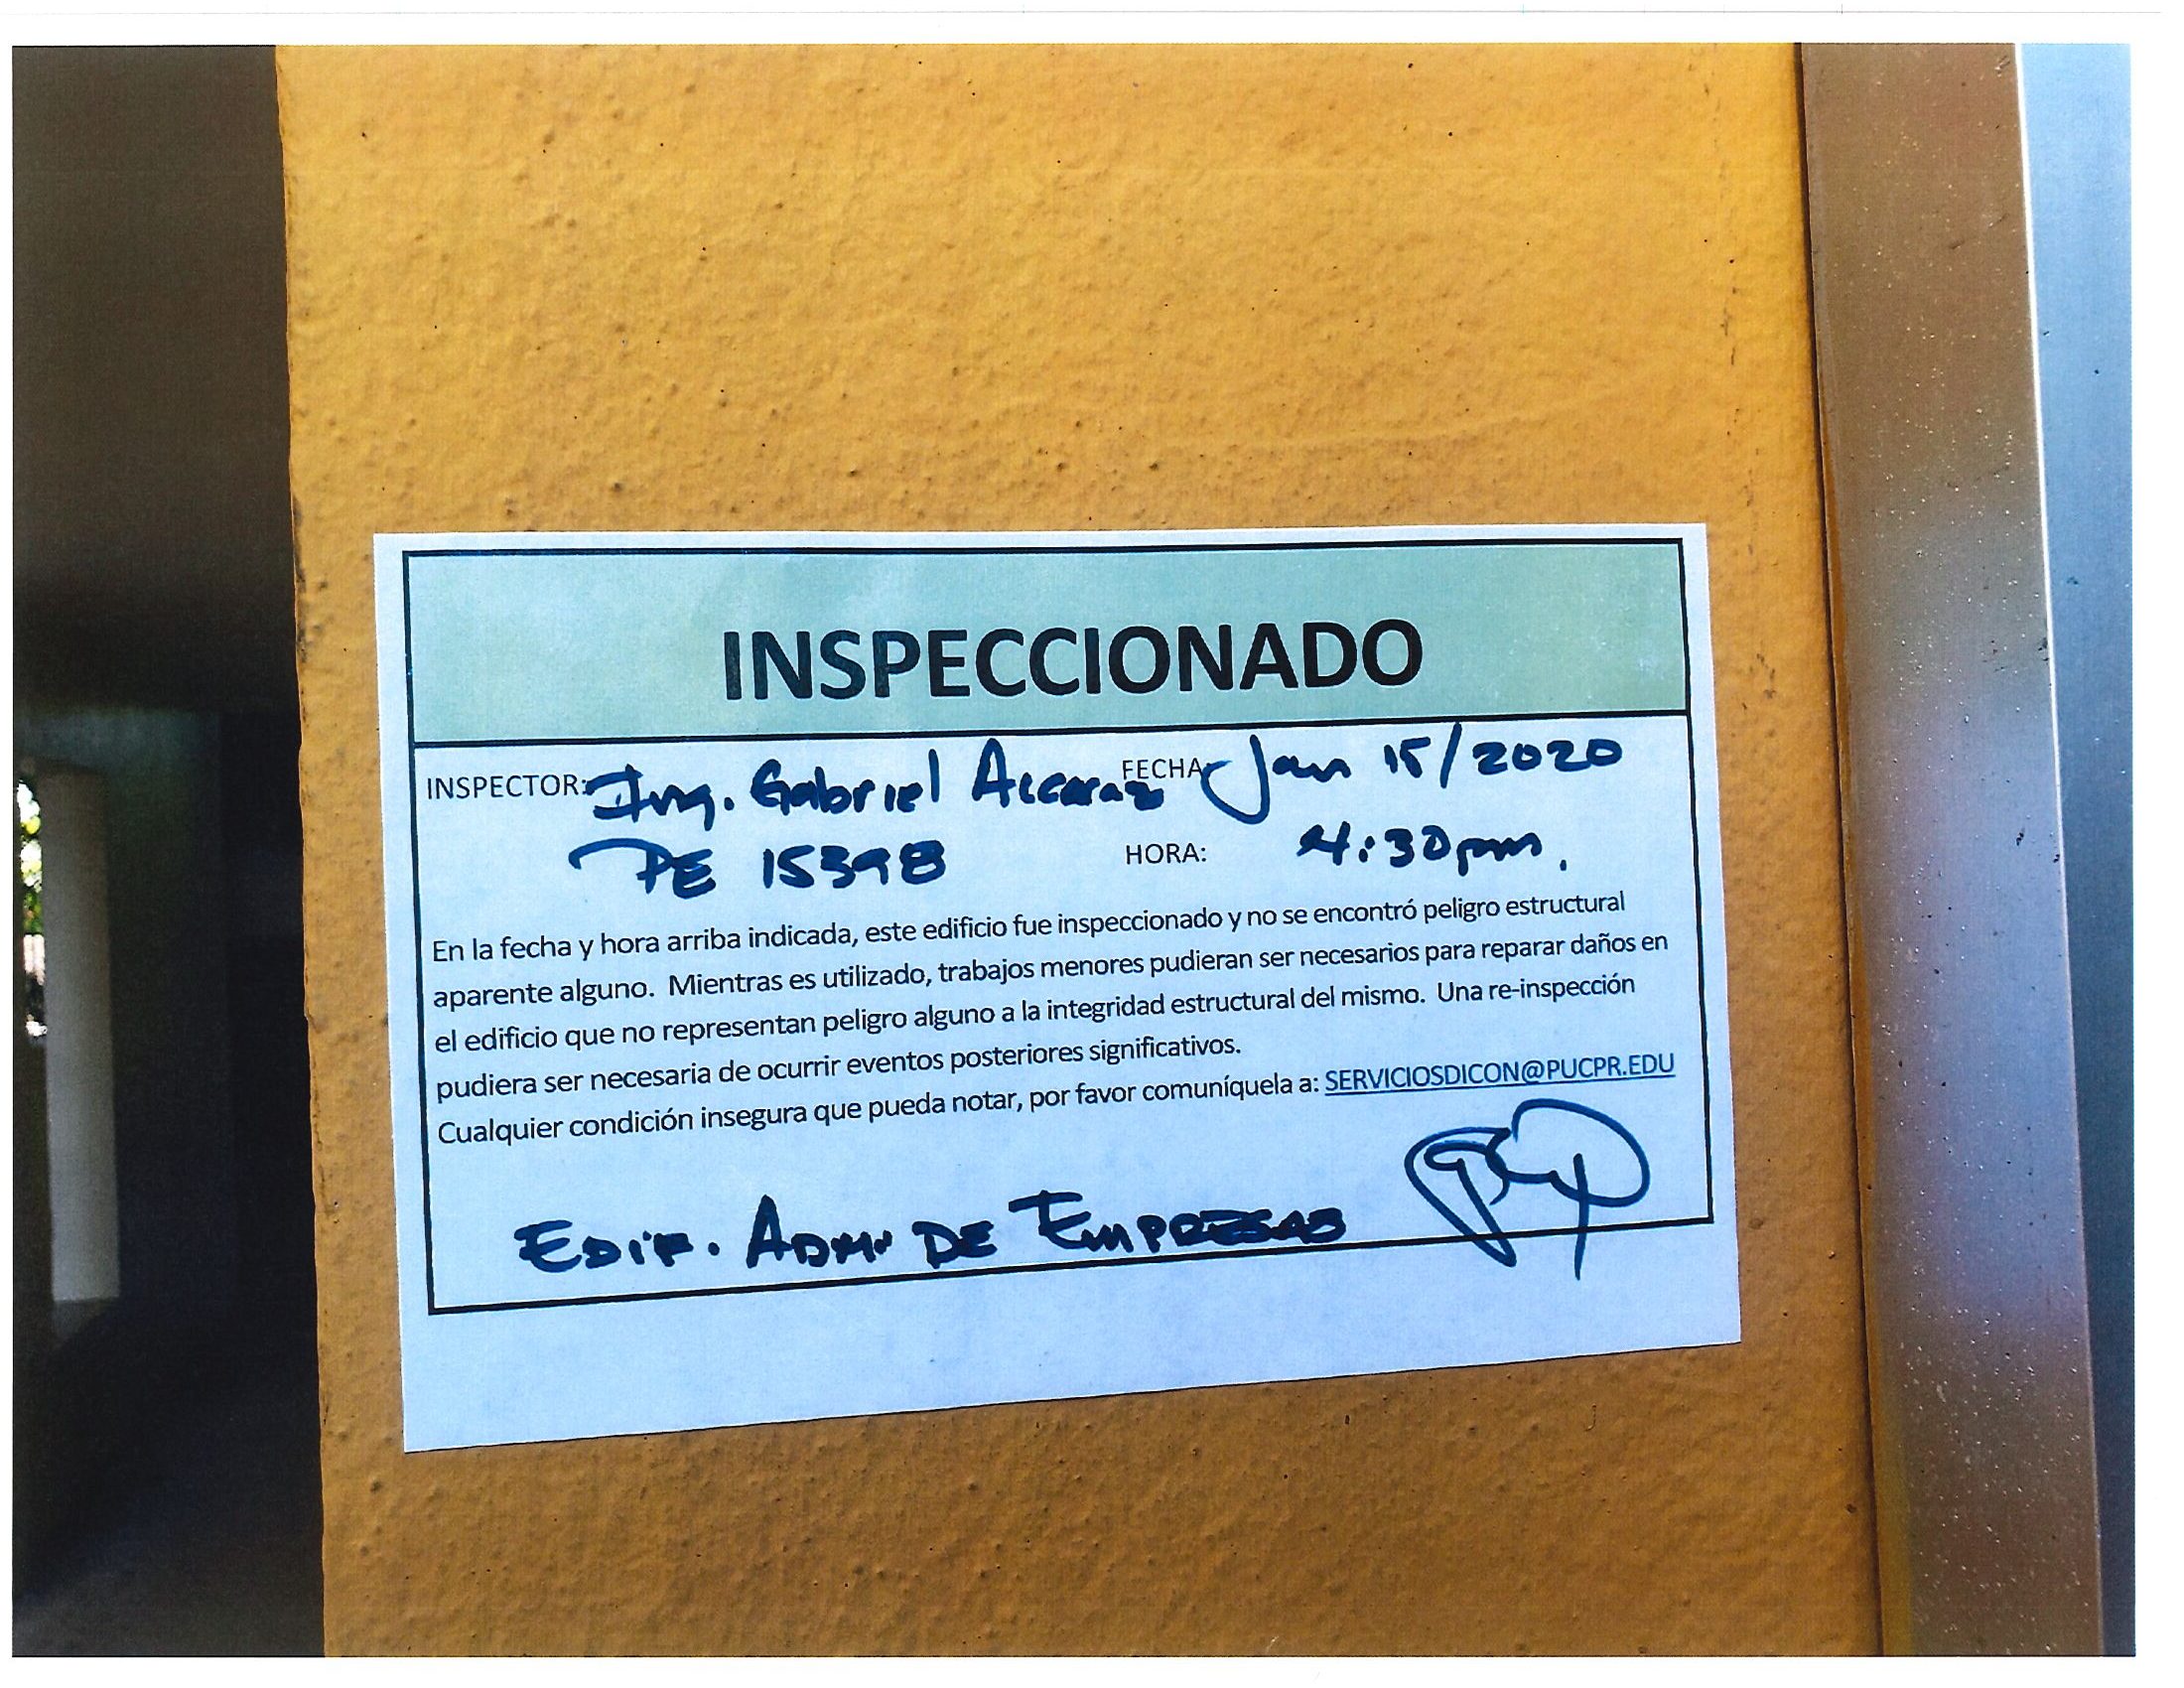 INSPECCIONADO
INSPECTOR: Ing. Gabriel Alcaraz FECHA: Jan 15/2020
PE 15398 HORA: 4:30pm.
En la fecha y hora arriba indicada, este edificio fue inspeccionado y no se encontró peligro estructural
aparente alguno. Mientras es utilizado, trabajos menores pudieran ser necesarios para reparar daños en
el edificio que no representan peligro alguno a la integridad estructural del mismo. Una re-inspección
pudiera ser necesaria de ocurrir eventos posteriores significativos.
Cualquier condición insegura que pueda notar, por favor comuníquela a: SERVICIOSDICON@PUCPR.EDU
EDIF. ADM. DE EMPRESAS